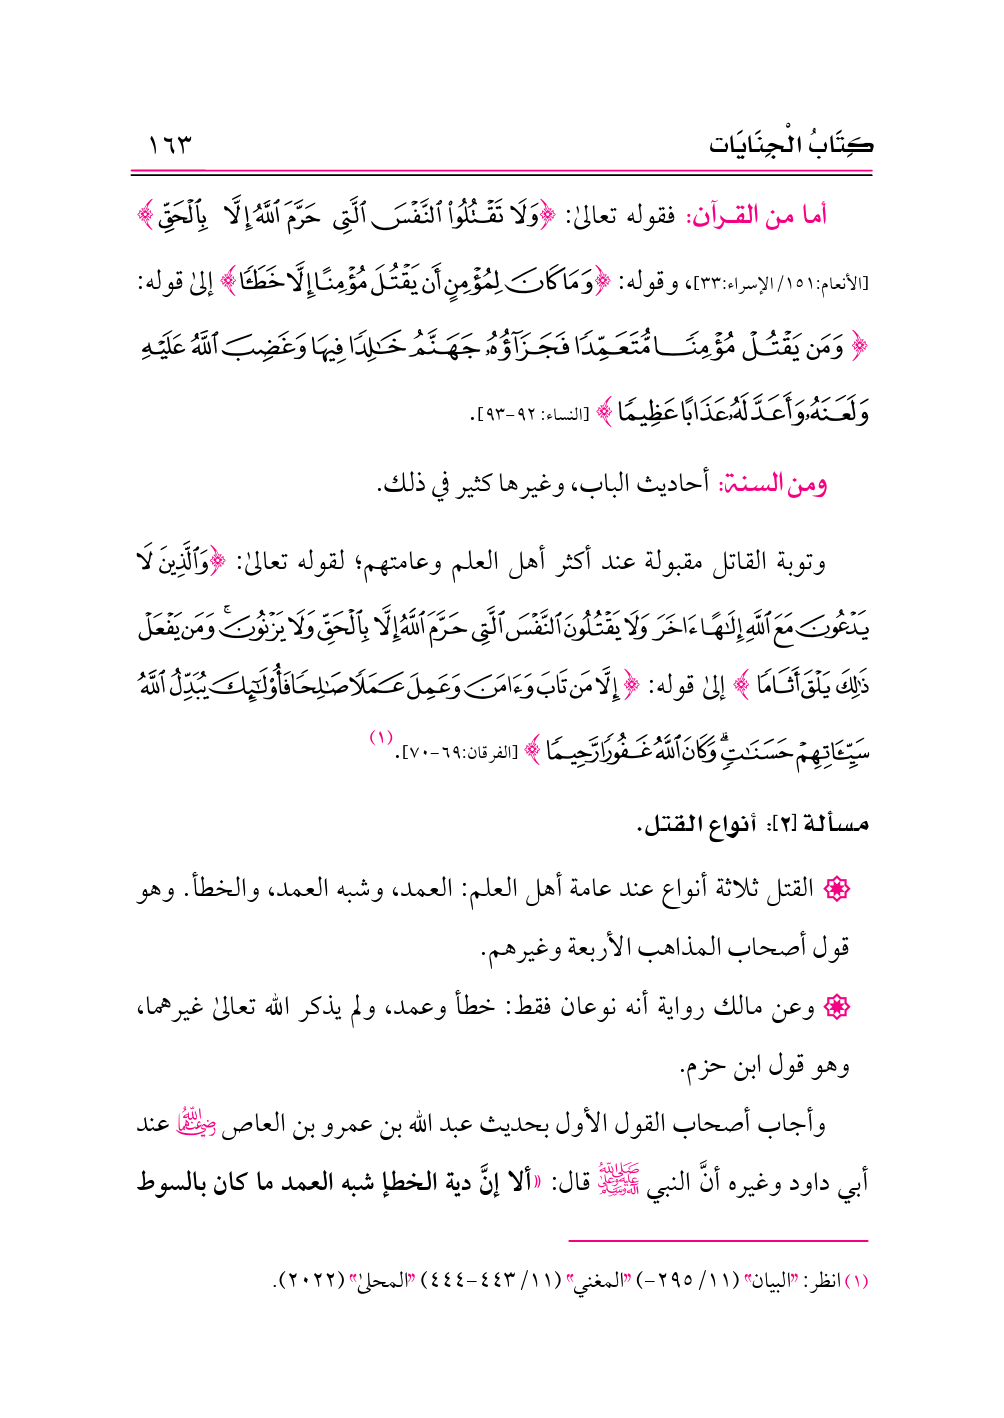 كِتَابُ الْجِنَايَات ١٦٣
أما من القرآن: فقوله تعالىٰ: ﴿وَلَا تَقْتُلُوا۟ ٱلنَّفْسَ ٱلَّتِي حَرَّمَ ٱللَّهُ إِلَّا بِٱلْحَقِّ﴾
[الأنعام:١٥١/ الإسراء:٣٣]، وقوله: ﴿وَمَا كَانَ لِمُؤْمِنٍ أَن يَقْتُلَ مُؤْمِنًا إِلَّا خَطَـًٔا﴾ إلىٰ قوله:
﴿وَمَن يَقْتُلْ مُؤْمِنًا مُّتَعَمِّدًا فَجَزَآؤُهُۥ جَهَنَّمُ خَٰلِدًا فِيهَا وَغَضِبَ ٱللَّهُ عَلَيْهِ
وَلَعَنَهُۥ وَأَعَدَّ لَهُۥ عَذَابًا عَظِيمًا﴾ [النساء: ٩٢-٩٣].
ومن السنة: أحاديث الباب، وغيرها كثير في ذلك.
وتوبة القاتل مقبولة عند أكثر أهل العلم وعامتهم؛ لقوله تعالىٰ: ﴿وَٱلَّذِينَ لَا
يَدْعُونَ مَعَ ٱللَّهِ إِلَٰهًا ءَاخَرَ وَلَا يَقْتُلُونَ ٱلنَّفْسَ ٱلَّتِي حَرَّمَ ٱللَّهُ إِلَّا بِٱلْحَقِّ وَلَا يَزْنُونَ ۚ وَمَن يَفْعَلْ
ذَٰلِكَ يَلْقَ أَثَامًا﴾ إلىٰ قوله: ﴿إِلَّا مَن تَابَ وَءَامَنَ وَعَمِلَ عَمَلًا صَٰلِحًا فَأُو۟لَٰٓئِكَ يُبَدِّلُ ٱللَّهُ
سَيِّـَٔاتِهِمْ حَسَنَٰتٍ ۗ وَكَانَ ٱللَّهُ غَفُورًا رَّحِيمًا﴾ [الفرقان:٦٩-٧٠].(١)
مسألة [٢]: أنواع القتل.
القتل ثلاثة أنواع عند عامة أهل العلم: العمد، وشبه العمد، والخطأ. وهو
قول أصحاب المذاهب الأربعة وغيرهم.
وعن مالك رواية أنه نوعان فقط: خطأ وعمد، ولم يذكر الله تعالىٰ غيرهما،
وهو قول ابن حزم.
وأجاب أصحاب القول الأول بحديث عبد الله بن عمرو بن العاص رضي الله عنهما عند
أبي داود وغيره أنَّ النبي ﷺ قال: «ألا إنَّ دية الخطإ شبه العمد ما كان بالسوط
(١) انظر: "البيان" (١١/ ٢٩٥-) "المغني" (١١/ ٤٤٣-٤٤٤) "المحلىٰ" (٢٠٢٢).